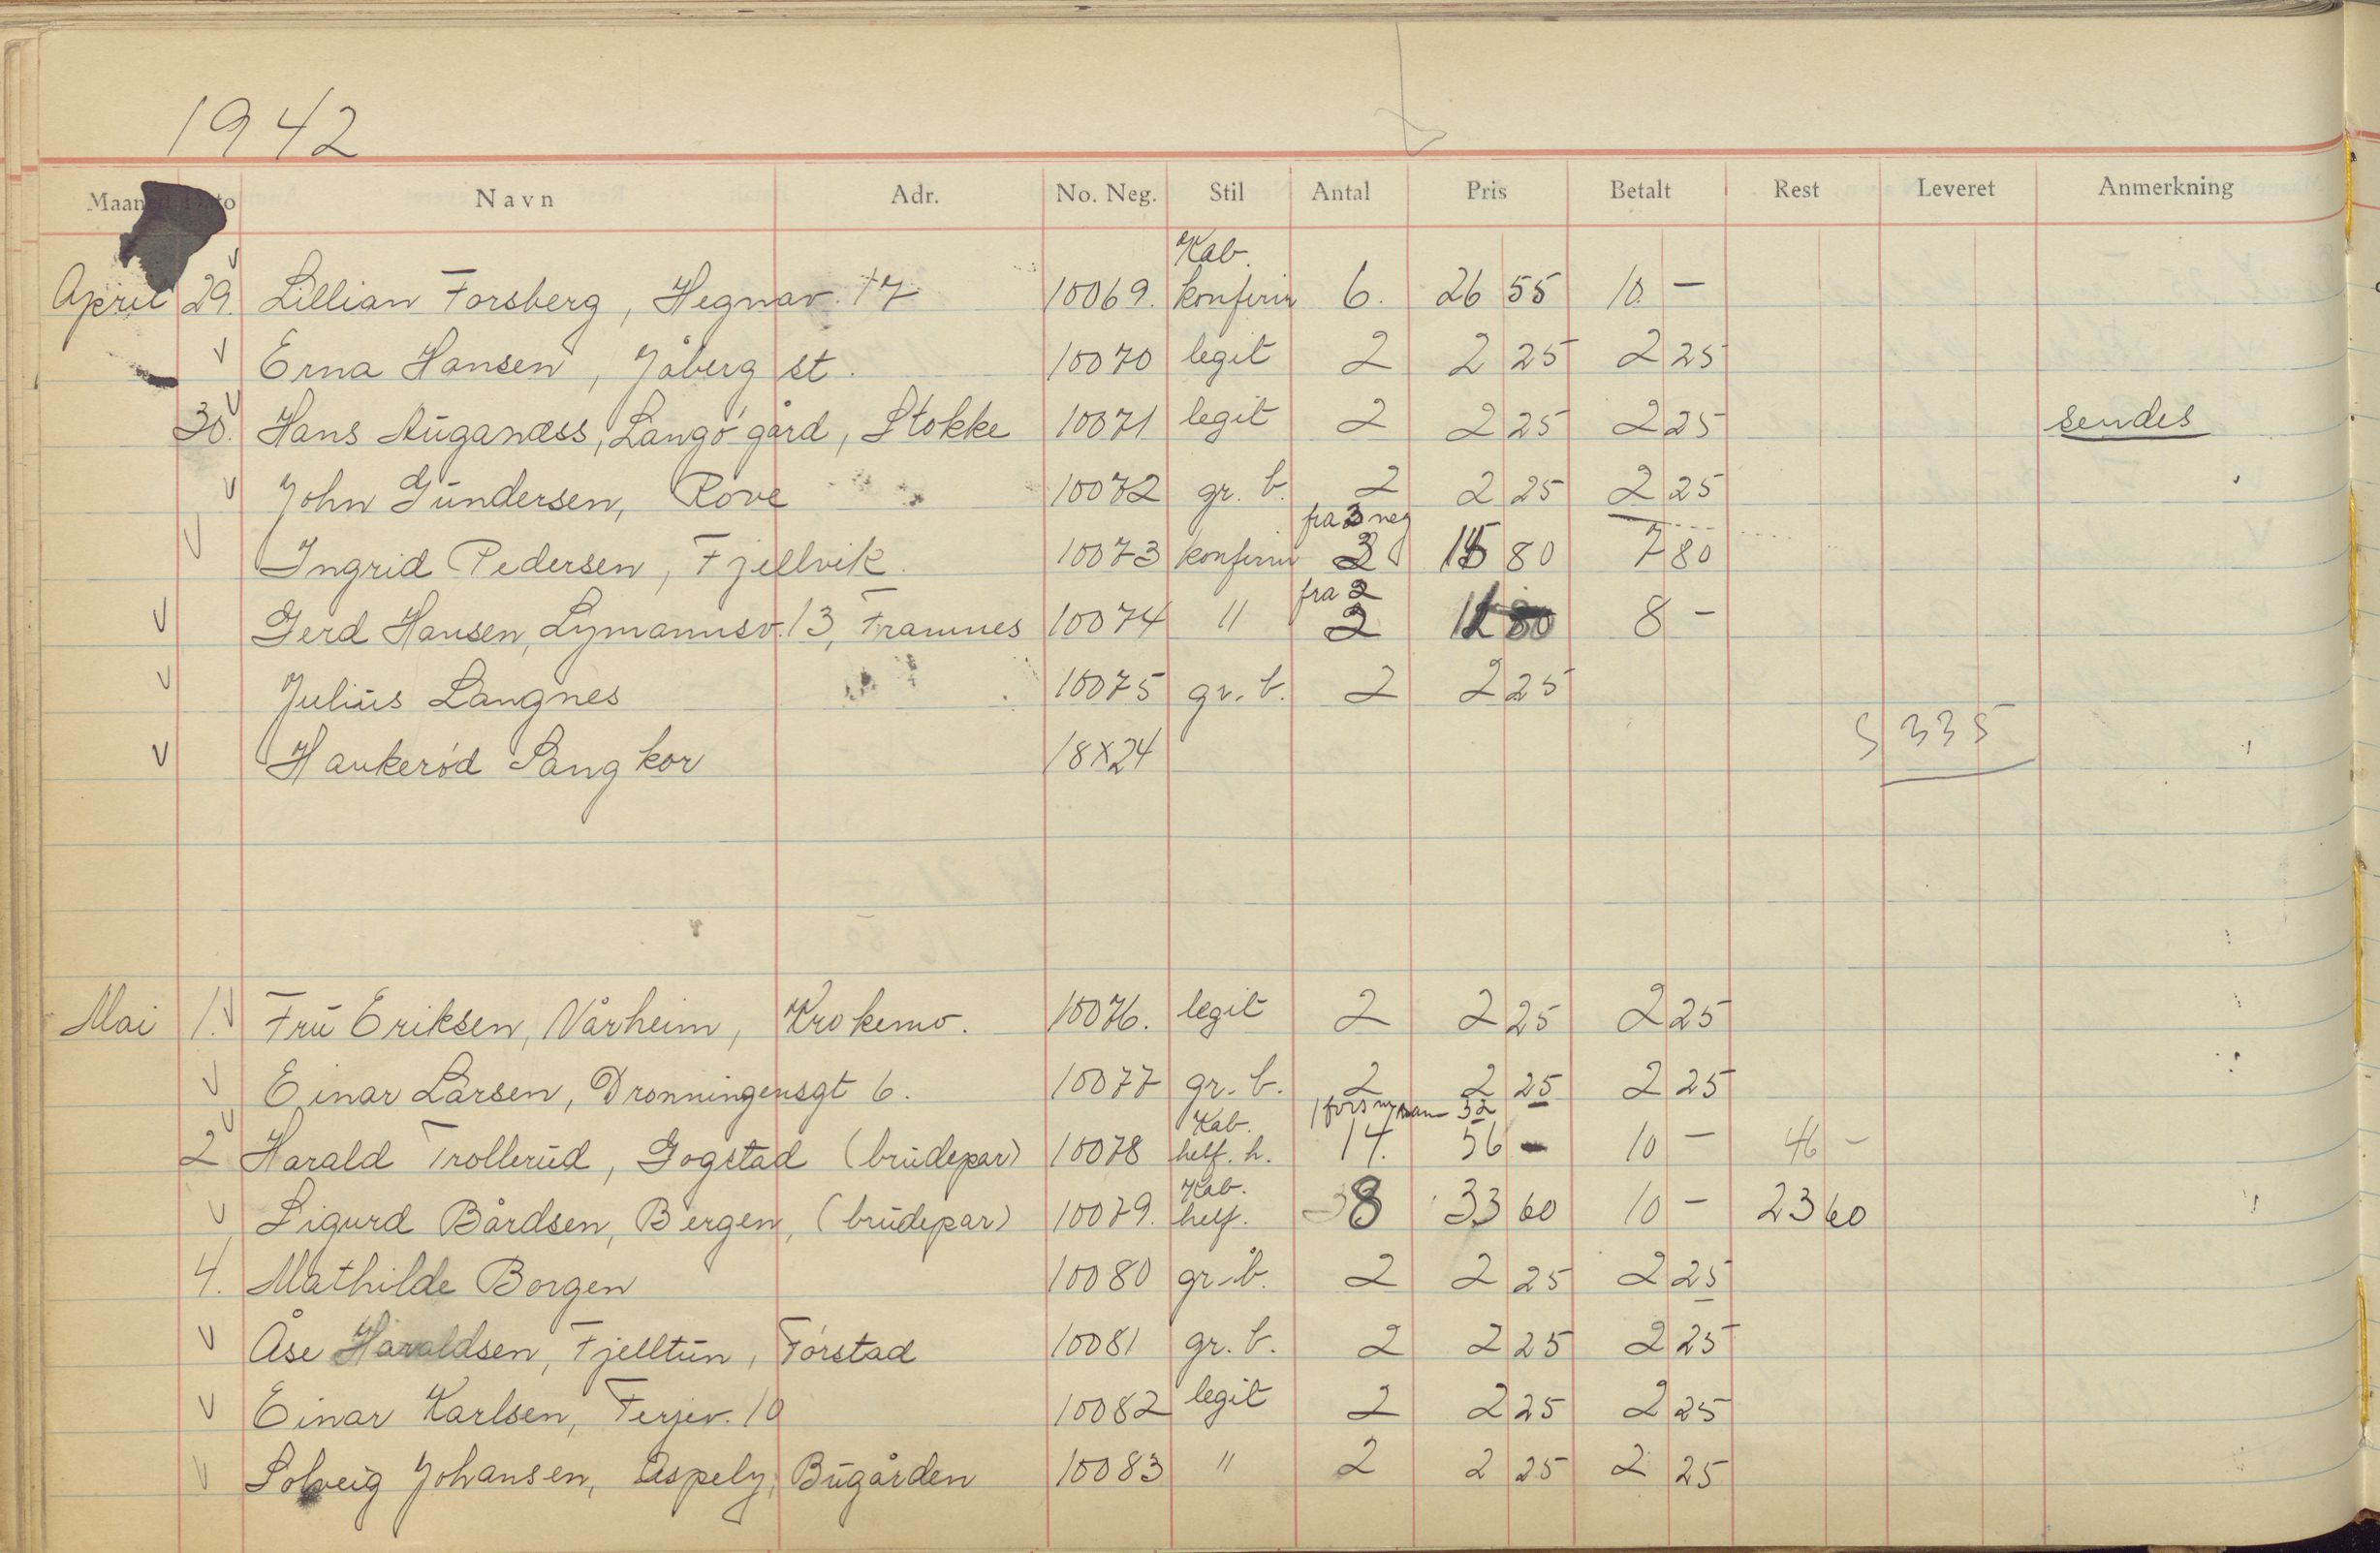 1942
Maaned Dato Navn Adr. No. Neg. Stil Antal Pris Betalt Rest Leveret Anmerkning
Kab.
April 29. Lillian Forsberg, Hegnav. 17 10069. konfirm 6. 26 55 10. -
Erna Hansen, Jåberg st. 10070 legit 2 2 25 2 25
30. Hans Auganæss, Langø gård, Stokke 10071 legit 2 2 25 2 25 sendes
John Gundersen, Rove 10072 gr. b. 2 2 25 2 25
fra 3 neg
Ingrid Pedersen, Fjellvik. 10073 konfirm 3 15 80 7 80
fra 2
Gerd Hansen, Lymannsv. 13, Framnes 10074 " 2 8 -
Julius Langnes 10075 gr. b. 2 2 25
Haukerød Sang kor 18x24 S 335
Mai 1. Fru Eriksen, Vårheim, Krokemo. 10076. legit 2 2 25 2 25
Einar Larsen, Dronningensgt 6. 10077 gr. b. 2 2 25 2 25
Kab. 52
2 Harald Trollerud, Gogstad (brudepar) 10078 helf. h. 14. 56 - 10 - 46 -
Kab.
Sigurd Bårdsen, Bergen, (brudepar) 10079. helf. 8 33 60 10 - 23 60
4. Mathilde Borgen 10080 gr. b. 2 2 25 2 25
Åse Haraldsen, Fjelltun, Førstad 10081 gr. b. 2 2 25 2 25
Einar Karlsen, Ferjev. 10 10082 legit 2 2 25 2 25
Solveig Johansen, Aspely, Bugården 10083 " 2 2 25 2 25